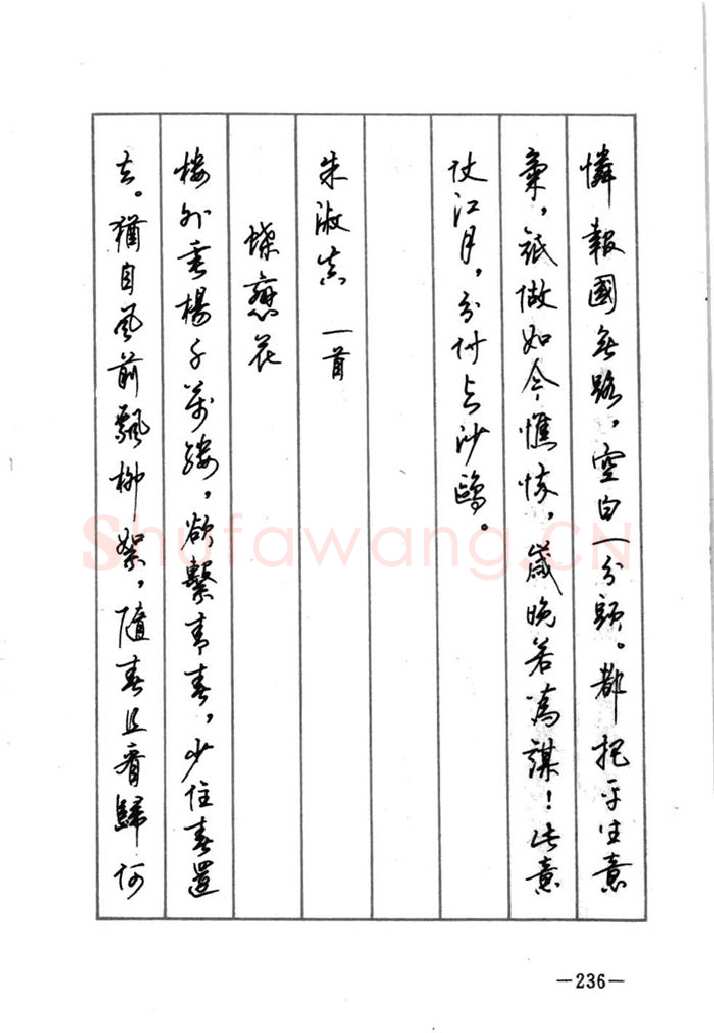 憐報國無路，空白一分頭。都把平生意
氣，祇做如今憔悴，歲晚若為謀！此意
仗江月，分付与沙鷗。
朱淑真 一首
蝶戀花
樓外垂楊千萬縷，欲繫青春，少住春還
去。猶自風前飄柳絮，隨春且看歸何
Shufawang.CN
—236—